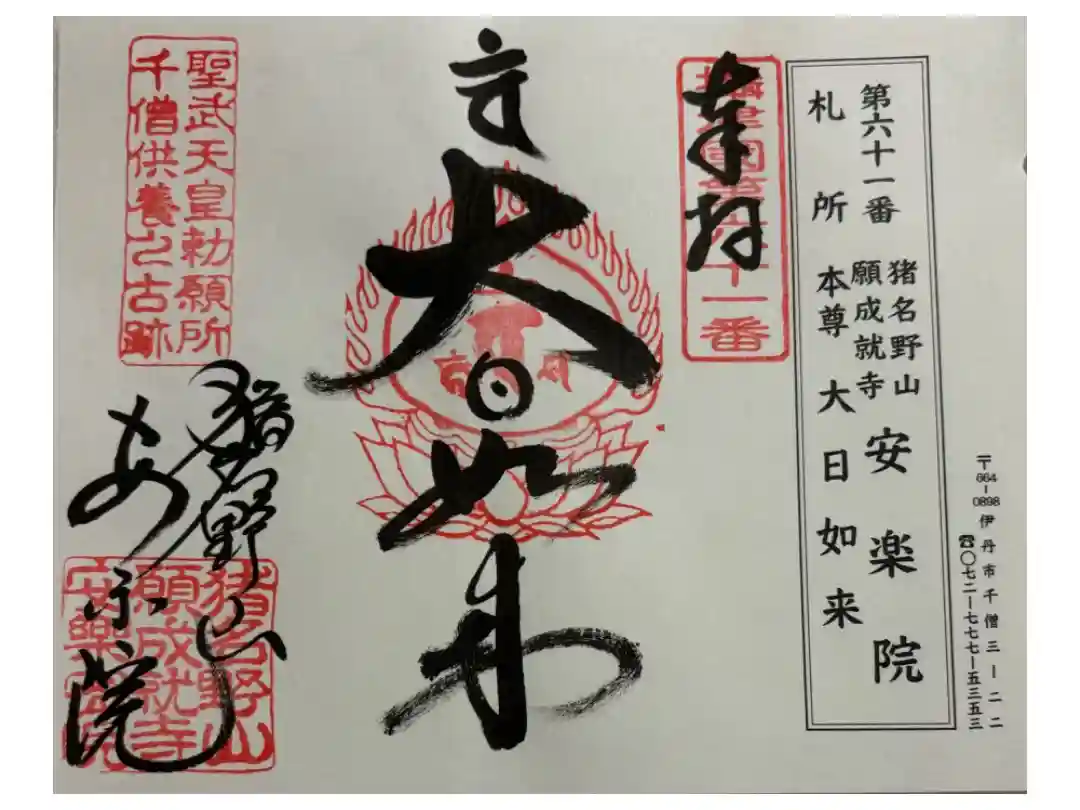 〒664-0898 伊丹市千僧三-二二
☎〇七二-七七七-五三五三
第六十一番 猪名野山 願成就寺 安楽院
札所 本尊 大日如来
奉拝
攝津國第六十一番
大日如来
聖武天皇勅願所
千僧供養之古跡
猪名野山
安楽院
猪名野山
願成就寺
安樂院